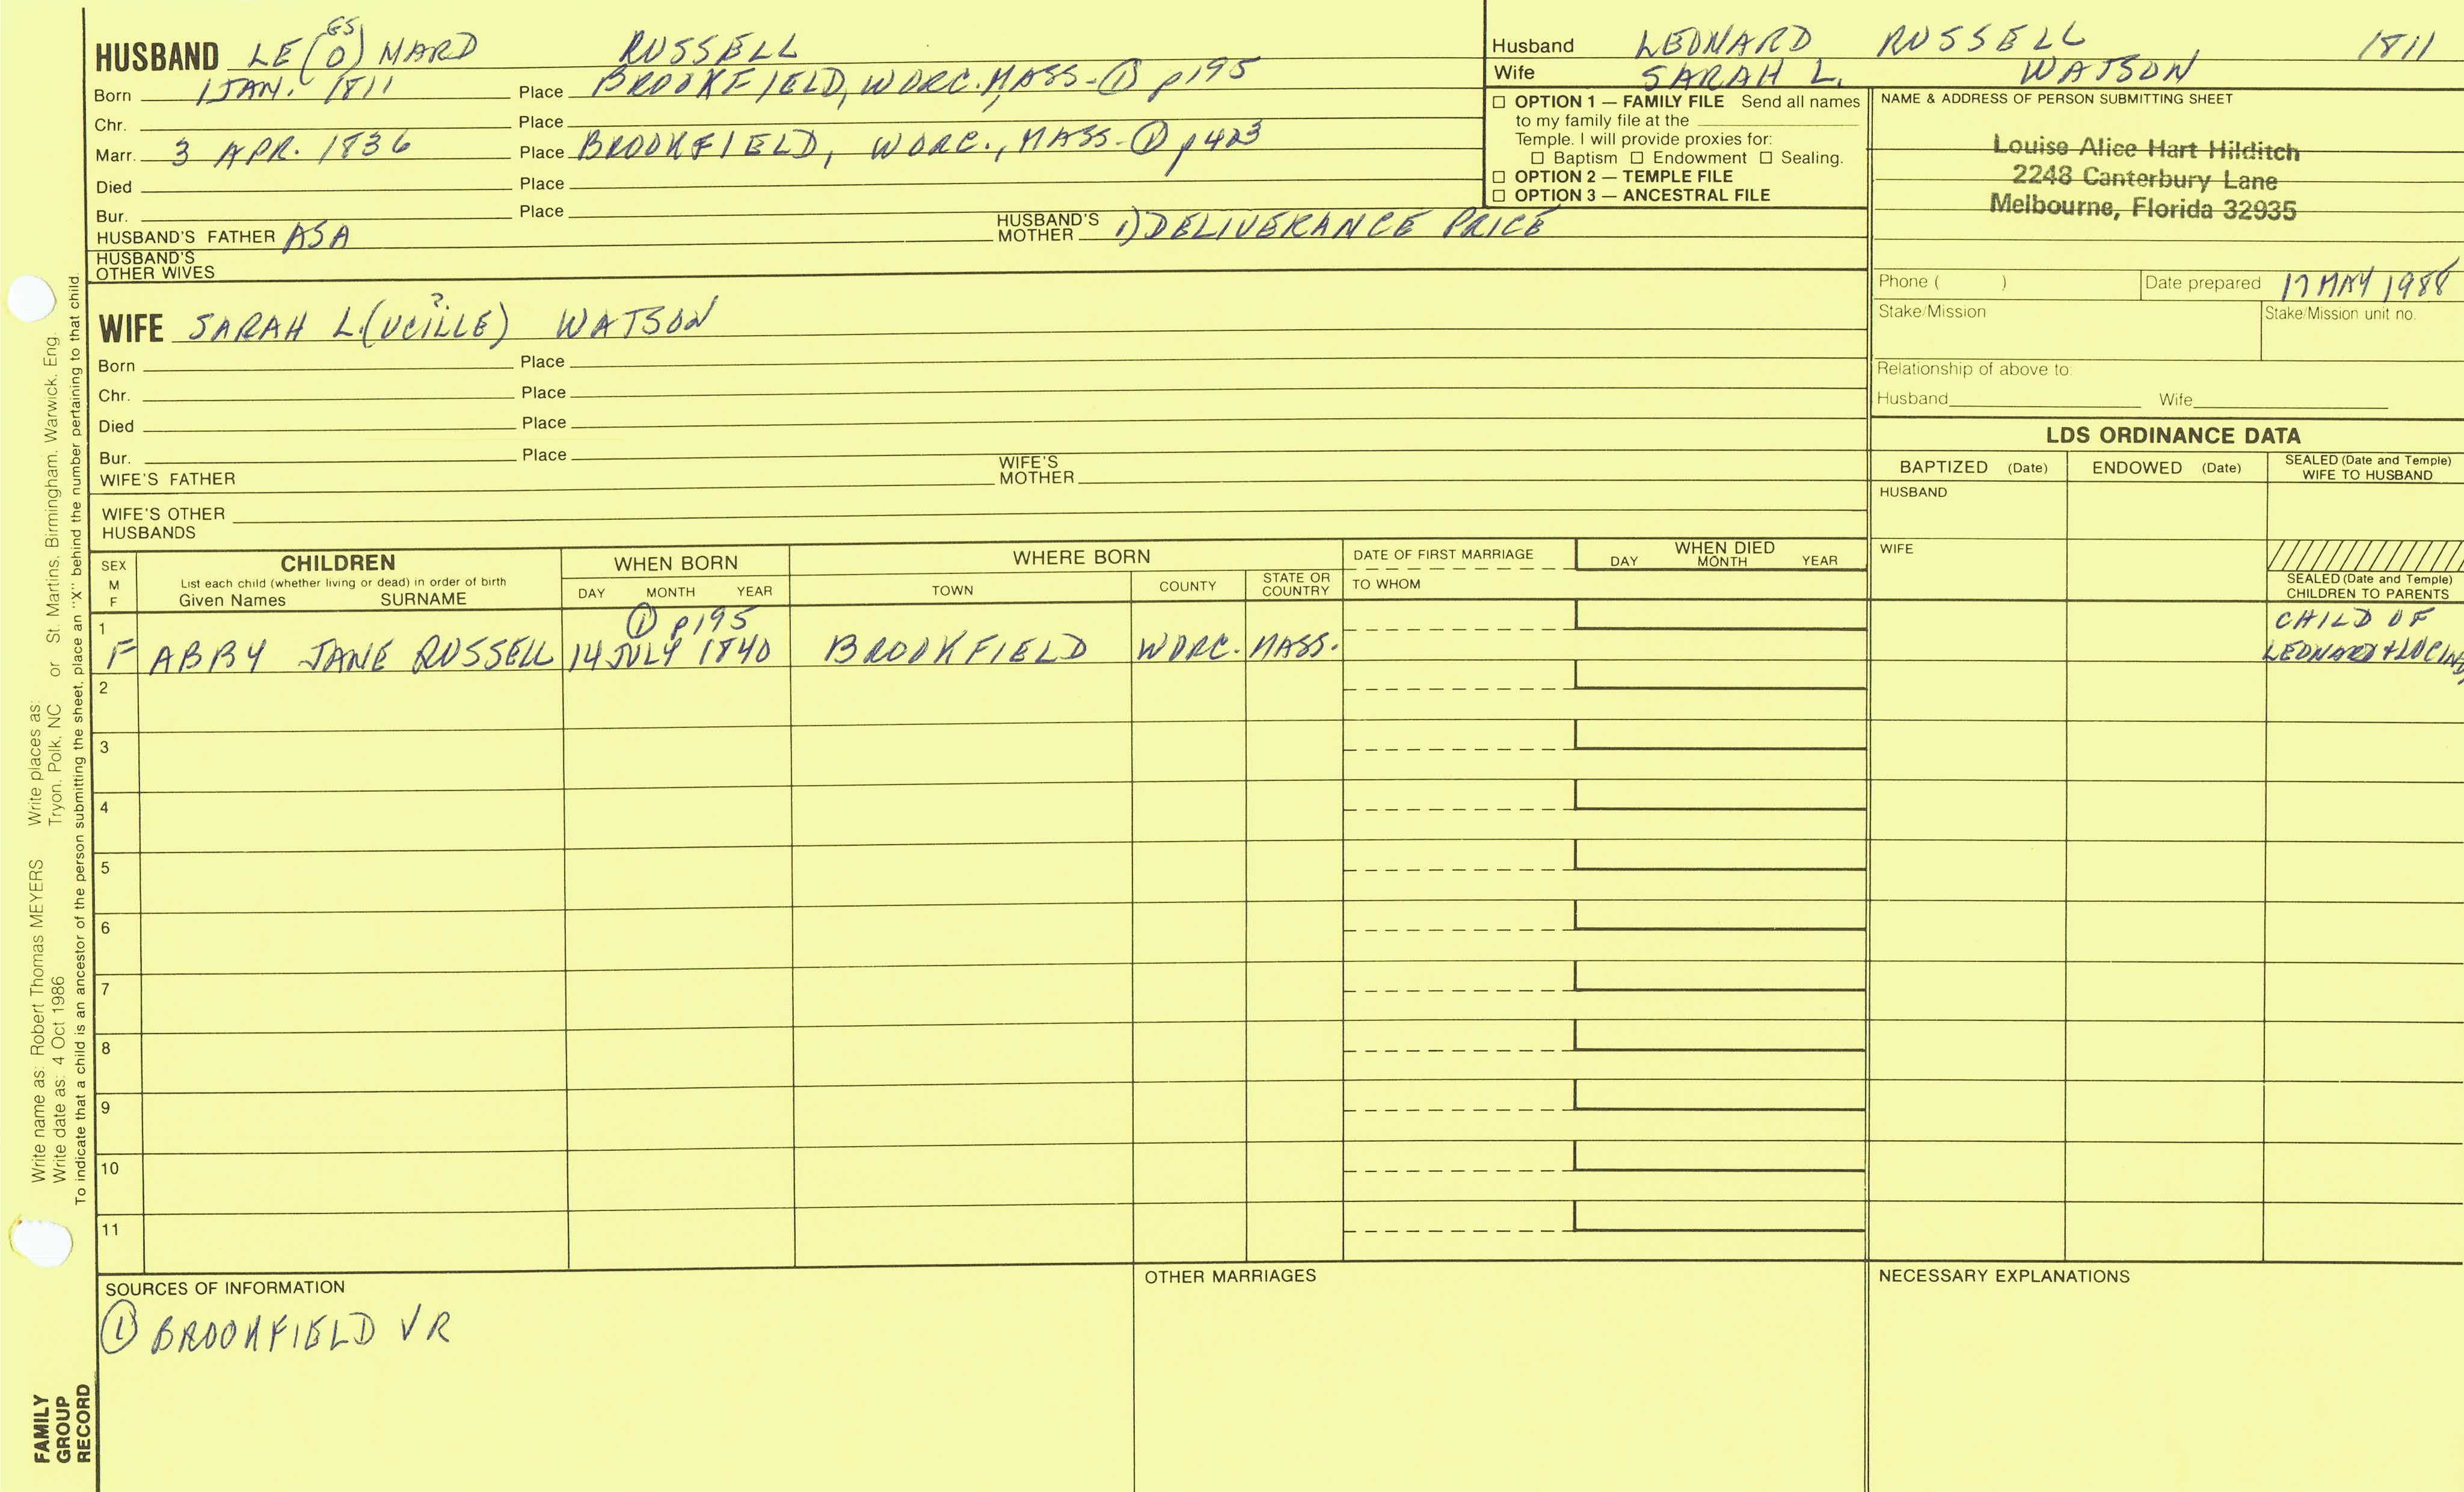 HUSBAND LE(O)NARD RUSSELL
ES
Born 1 JAN. 1811 Place BROOKFIELD, WORC. MASS-① p195
Chr. Place
Marr. 3 APR. 1836 Place BROOKFIELD, WORC., MASS-① p423
Died Place
Bur. Place
HUSBAND'S FATHER ASA HUSBAND'S MOTHER 1) DELIVERANCE PRICE
HUSBAND'S OTHER WIVES
WIFE SARAH L(UCILLE) WATSON
?
Born Place
Chr. Place
Died Place
Bur. Place
WIFE'S FATHER WIFE'S MOTHER
WIFE'S OTHER HUSBANDS
Husband LEONARD RUSSELL 1811
Wife SARAH L. WATSON
☐ OPTION 1 — FAMILY FILE Send all names
to my family file at the
Temple. I will provide proxies for:
☐ Baptism ☐ Endowment ☐ Sealing.
☐ OPTION 2 — TEMPLE FILE
☐ OPTION 3 — ANCESTRAL FILE
NAME & ADDRESS OF PERSON SUBMITTING SHEET
Louise Alice Hart Hilditch
2248 Canterbury Lane
Melbourne, Florida 32935
Phone ( ) Date prepared 17 MAY 1988
Stake/Mission Stake/Mission unit no.
Relationship of above to:
Husband Wife
LDS ORDINANCE DATA
BAPTIZED (Date) ENDOWED (Date) SEALED (Date and Temple) WIFE TO HUSBAND
HUSBAND
WIFE
SEALED (Date and Temple)
CHILDREN TO PARENTS
SEX M F
CHILDREN
List each child (whether living or dead) in order of birth
Given Names SURNAME
WHEN BORN
DAY MONTH YEAR
WHERE BORN
TOWN COUNTY STATE OR COUNTRY
DATE OF FIRST MARRIAGE
TO WHOM
WHEN DIED
DAY MONTH YEAR
① p195 CHILD OF
1 F ABBY JANE RUSSELL 14 JULY 1840 BROOKFIELD WORC. MASS. LEONARD + LUCINDA
2
3
4
5
6
7
8
9
10
11
SOURCES OF INFORMATION
① BROOKFIELD VR
OTHER MARRIAGES
NECESSARY EXPLANATIONS
Write name as: Robert Thomas MEYERS Write places as:
Write date as: 4 Oct 1986 Tryon, Polk, NC or St. Martins, Birmingham, Warwick, Eng.
To indicate that a child is an ancestor of the person submitting the sheet, place an "X" behind the number pertaining to that child.
FAMILY
GROUP
RECORD